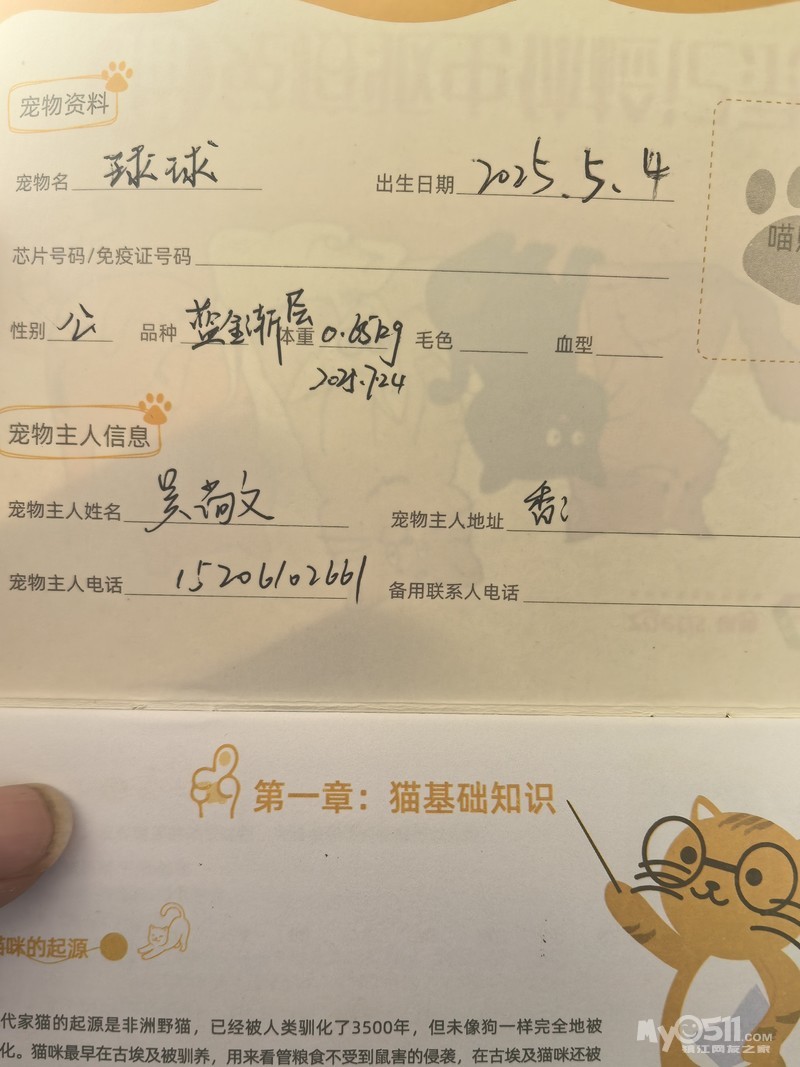 宠物资料
宠物名 球球 出生日期 2025.5.4
芯片号码/免疫证号码
性别 公 品种 蓝金渐层 体重 0.65kg 毛色 血型
2025.7.24
喵
宠物主人信息
宠物主人姓名 吴尚文 宠物主人地址 香
宠物主人电话 15206102661 备用联系人电话
第一章：猫基础知识
猫咪的起源
代家猫的起源是非洲野猫，已经被人类驯化了3500年，但未像狗一样完全地被
化。猫咪最早在古埃及被驯养，用来看管粮食不受到鼠害的侵袭，在古埃及猫咪还被
My0511.COM
镇江网友之家